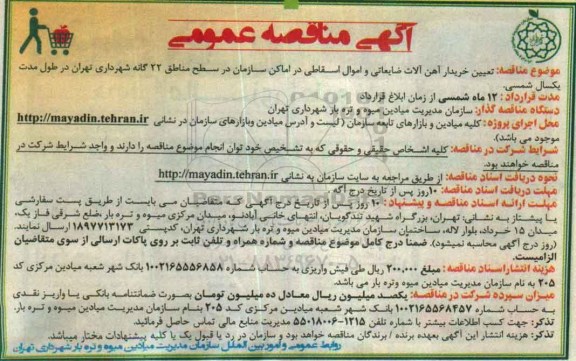 آگهی مناقصه عمومی
موضوع مناقصه: تعیین خریدار آهن آلات ضایعاتی و اموال اسقاطی در اماکن سازمان در سطح مناطق ۲۲ گانه شهرداری تهران در طول مدت
یکسال شمسی.
مدت قرارداد: ۱۲ ماه شمسی از زمان ابلاغ قرارداد
دستگاه مناقصه گذار: سازمان مدیریت میادین میوه و تره بار شهرداری تهران
محل اجرای پروژه: کلیه میادین و بازارهای تابعه سازمان (لیست و آدرس میادین وبازارهای سازمان در نشانی http://mayadin.tehran.ir
موجود می باشد).
شرایط شرکت در مناقصه: کلیه اشخاص حقیقی و حقوقی که به تشخیص خود توان انجام موضوع مناقصه را دارند و واجد شرایط شرکت در
مناقصه خواهند بود.
نحوه دریافت اسناد مناقصه: از طریق مراجعه به سایت سازمان به نشانی http://mayadin.tehran.ir
مهلت دریافت اسناد مناقصه: ۱۰روز پس از تاریخ درج آگهی
مهلت ارائه اسناد مناقصه و پیشنهاد: ۱۰ روز پس از تاریخ درج آگهی که متقاضیان می بایست از طریق پست سفارشی
یا پیشتاز به نشانی: تهران، بزرگراه شهید تندگویان، انتهای خانی آبادنو، میدان مرکزی میوه و تره بار ضلع شرقی فاز یک،
میدان ۱۵ خرداد، بلوار لاله، ساختمان سازمان مدیریت میادین میوه و تره بار شهرداری تهران، کدپستی ۱۸۹۷۷۱۳۱۷۳ ارسال نمایند.
(روز درج آگهی محاسبه نمیشود). ضمنا درج کامل موضوع مناقصه و شماره همراه و تلفن ثابت بر روی پاکات ارسالی از سوی متقاضیان
الزامیست.
هزینه انتشاراسناد مناقصه: مبلغ ۲۰۰,۰۰۰ ریال طی فیش واریزی به حساب شماره ۱۰۰۲۱۶۵۵۵۶۸۵۸ بانک شهر شعبه میادین مرکزی کد
۲۰۵ به نام سازمان مدیریت میادین میوه وتره بار می باشد.
میزان سپرده شرکت در مناقصه: یکصد میلیون ریال معادل ده میلیون تومان بصورت ضمانتنامه بانکی یا واریز نقدی
به حساب شماره ۱۰۰۲۱۶۵۵۶۸۴۵۷ بانک شهر شعبه میادین مرکزی کد ۲۰۵ بنام سازمان مدیریت میادین میوه و تره بار.
تذکر: جهت کسب اطلاعات بیشتر با شماره تلفن ۱۲۱۵-۵۵۰۱۸۰۰۶ مدیریت منابع مالی تماس حاصل فرمائید.
تذکر: هزینه انتشار این آگهی بعهده برنده / برندگان مناقصه خواهد بود و سازمان در رد یا قبول یک یا کلیه پیشنهادات مختار میباشد
روابط عمومی و امور بین الملل سازمان مدیریت میادین میوه و تره بار شهرداری تهران